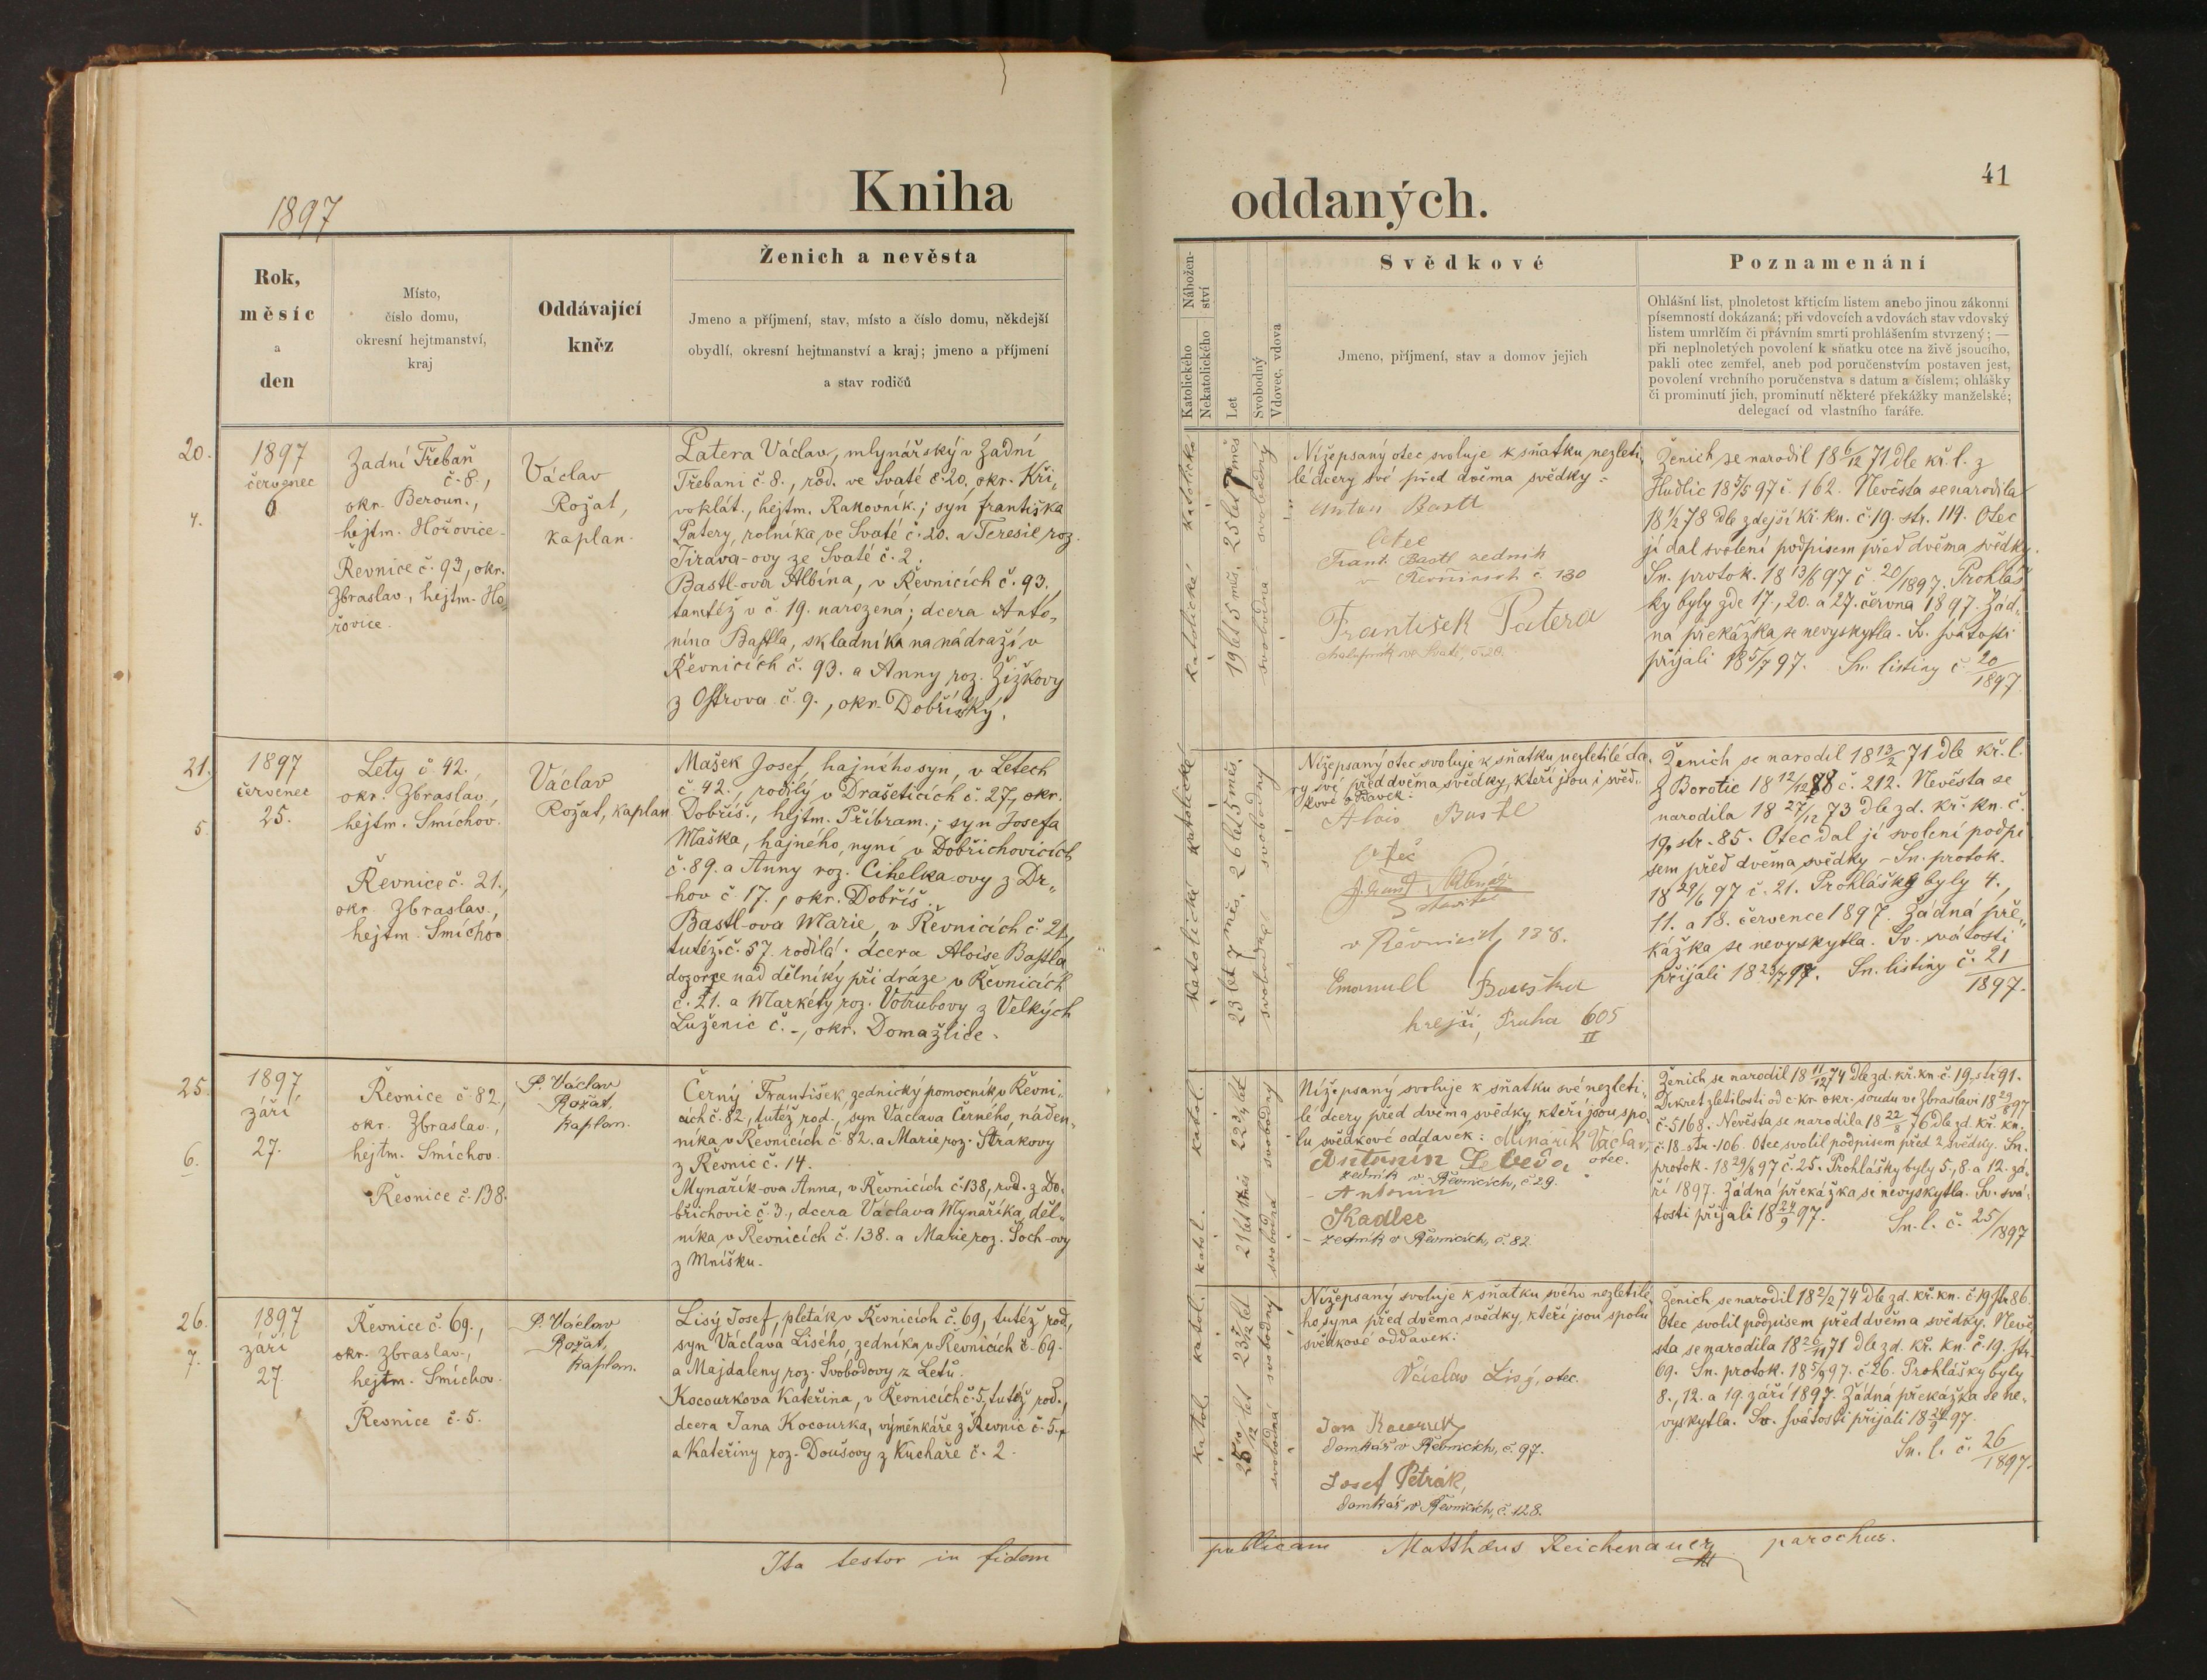 1897
Kniha
Rok,
měsíc
a
den
Místo,
číslo domu,
okresní hejtmanství,
kraj
Oddávající
kněz
Ženich a nevěsta
Jmeno a příjmení, stav, místo a číslo domu, někdejší
obydlí, okresní hejtmanství a kraj; jmeno a příjmení
a stav rodičů
20.
4.
1897
červenec
6
Zadní Třebaň
č. 8.,
okr. Beroun.,
hejtm. Hořovice
Řevnice č. 93, okr.
Zbraslav, hejtm. Ho„
řovice.
Václav
Rožat,
kaplan.
Patera Václav, mlynářský v Zadní
Třebani č. 8., rod. ve Svaté č. 20, okr. Kři„
voklát., hejtm. Rakovník.; syn Františka
Patery, rolníka ve Svaté č. 20. a Teresie roz.
Tirava-ovy ze Svaté č. 2.
Bastl-ova Albína, v Řevnicích č. 93,
tamtéž v č. 19. narozená; dcera Anto„
nína Bastla, skladníka na nádraží v
Řevnicích č. 93. a Anny roz. Žižkovy
z Ostrova č. 9., okr. Dobříšský.
21.
5.
1897
červenec
25.
Lety č. 42.,
okr. Zbraslav,
hejtm. Smíchov.
Řevnice č. 21.,
okr. Zbraslav.,
hejtm. Smíchov
Václav
Rožat, kaplan
Mašek Josef, hajného syn, v Letech
č. 42., rodilý v Drašeticích č. 27, okr.
Dobříš., hejtm. Příbram.; syn Josefa
Maška, hajného, nyní v Dobřichovicích
č. 89. a Anny roz. Cihelka-ovy z Dr„
hov č. 17., okr. Dobříš.
Bastl-ova Marie, v Řevnicích č. 21,
tutéž č. 57. rodilá; dcera Aloise Bastla
dozorce nad dělníky při dráze v Řevnicích
č. 21. a Markéty roz. Votrubovy z Velkých
Luženic č. -, okr. Domažlice.
25.
6.
1897
září
27.
Řevnice č. 82.,
okr. Zbraslav.,
hejtm. Smíchov.
Řevnice č. 138.
P. Václav
Rožat,
kaplan.
Černý František, zednický pomocník v Řevni„
cích č. 82, tutéž rod., syn Václava Černého, náden„
níka v Řevnicích č. 82. a Marie roz. Strakovy
z Řevnic č. 14.
Mynařík-ova Anna, v Řevnicích č. 138, rod. z Do„
břichovic č. 3., dcera Václava Mynaříka, děl„
níka v Řevnicích č. 138. a Marie roz. Šoch-ovy
z Mníšku.
26.
7.
1897
září
27.
Řevnice č. 69.,
okr. Zbraslav.,
hejtm. Smíchov.
Řevnice č. 5.
P. Václav
Rožat,
kaplan.
Lisý Josef, pleták v Řevnicích č. 69, tutéž rod.,
syn Václava Lisého, zedníka v Řevnicích č. 69.
a Majdaleny roz. Svobodovy z Letů.
Kocourkova Kateřina, v Řevnicích č. 5, tutéž rod.,
dcera Jana Kocourka, výměnkáře z Řevnic č. 5.,
a Kateřiny roz. Doušovy z Kuchaře č. 2.
Ita testor in fidem
41
oddaných.
Náboženství
Katolického
Nekatolického
Let
Svobodný
Vdovec, vdova
Svědkové
Jmeno, příjmení, stav a domov jejich
Poznamenání
Ohlášní list, plnoletost křticím listem anebo jinou zákonní
písemností dokázaná; při vdovcích a vdovách stav vdovský
listem umrlčím či právním smrti prohlášením stvrzený; —
při neplnoletých povolení k sňatku otce na živě jsoucího,
pakli otec zemřel, aneb pod poručenstvím postaven jest,
povolení vrchního poručenstva s datum a číslem; ohlášky
či prominutí jich, prominutí některé překážky manželské;
delegací od vlastního faráře.
katolická katolické
19 let 5 měs. 25 let 7 měs
svobodná svobodný
Nížepsaný otec svoluje k sňatku nezleti„
lé dcery své před dvěma svědky:
Anton Bastl
Otec
Frant. Bastl zedník
v Řevnicech č. 130
František Patera
chalupník ve Svaté č. 20.
Ženich se narodil 18 6/12 71 dle kř. l. z
Hudlic 18 5/5 97 č. 162. Nevěsta se narodila
18 1/2 78 dle zdejší kř. kn. č. 19. str. 119. Otec
jí dal svolení podpisem před dvěma svědky.
Sn. protok. 18 13/6 97 č. 20/1897. Prohláš„
ky byly zde 17., 20. a 27. června 1897. Žád„
ná překážka se nevyskytla. Sv. svátosti
přijali 18 5/7 97. Sn. listiny č. 20/1897
katolická katolické
23 let 7 měs. 26 let 5 měs.
svobodná svobodný
Nížepsaný otec svoluje k sňatku nezletilé dce„
ry své před dvěma svědky, kteří jsou i svěd„
kové oddavek:
Alois Bastl
Otec
stavitel
v Řevnicích 138.
Emanuel Bouška
krejčí, Praha 605
II
Ženich se narodil 18 13/2 71 dle kř. l.
z Borotic 18 12/12 88 č. 212. Nevěsta se
narodila 18 27/12 73 dle zd. kř. kn. č.
19, str. 85. Otec dal jí svolení podpi„
sem před dvěma svědky – Sn. protok.
18 29/6 97 č. 21. Prohlášky byly 4.,
11. a 18. července 1897. Žádná pře„
kážka se nevyskytla. Sv. svátosti
přijali 18 23/7 97. Sn. listiny č. 21/1897.
katol. katol.
svobodná svobodný
Nížepsaný svoluje k sňatku své nezleti„
lé dcery před dvěma svědky, kteří jsou spo„
lu svědkové oddavek: Minařík Václav,
otec.
Antonín Lebeda
zedník v Řevnicích, č. 29.
Antonín
Kadlec
zedník v Řevnicích, č. 82
Ženich se narodil 18 11/12 74 dle zd. kř. kn. č. 19, str. 91.
Dekret zletilosti od c. kr. okr. soudu ve Zbraslavi 18 29/8 97
č. 5168. Nevěsta se narodila 18 22/8 76 dle zd. kř. kn.
č. 18. str. 106. Otec svolil podpisem před 2 svědky. Sn.
protok. 18 29/8 97 č. 25. Prohlášky byly 5., 8. a 12. zá„
ří 1897. Žádná překážka se nevyskytla. Sv. svá„
tosti přijali 18 24/9 97. Sn. l. č. 25/1897
katol. katol.
svobodná svobodný
Nížepsaný svoluje k sňatku svého nezletilé„
ho syna před dvěma svědky, kteří jsou spolu
svědkové oddavek:
Václav Lisý, otec.
Jan Kocourek
domkář v Řevnicích, č. 97.
Josef Petrák,
domkář v Řevnicích, č. 128.
Ženich se narodil 18 2/2 74 dle zd. kř. kn. č. 19, str. 86.
Otec svolil podpisem před dvěma svědky. Nevě„
sta se narodila 18 26/11 71 dle zd. kř. kn. č. 19. str.
69. Sn. protok. 18 5/9 97. č. 26. Prohlášky byly
8., 12. a 19. září 1897. Žádná překážka se ne„
vyskytla. Sv. svátosti přijali 18 24/9 97.
Sn. l. č. 26/1897.
publicam Matthäus Reichenauer parochus.